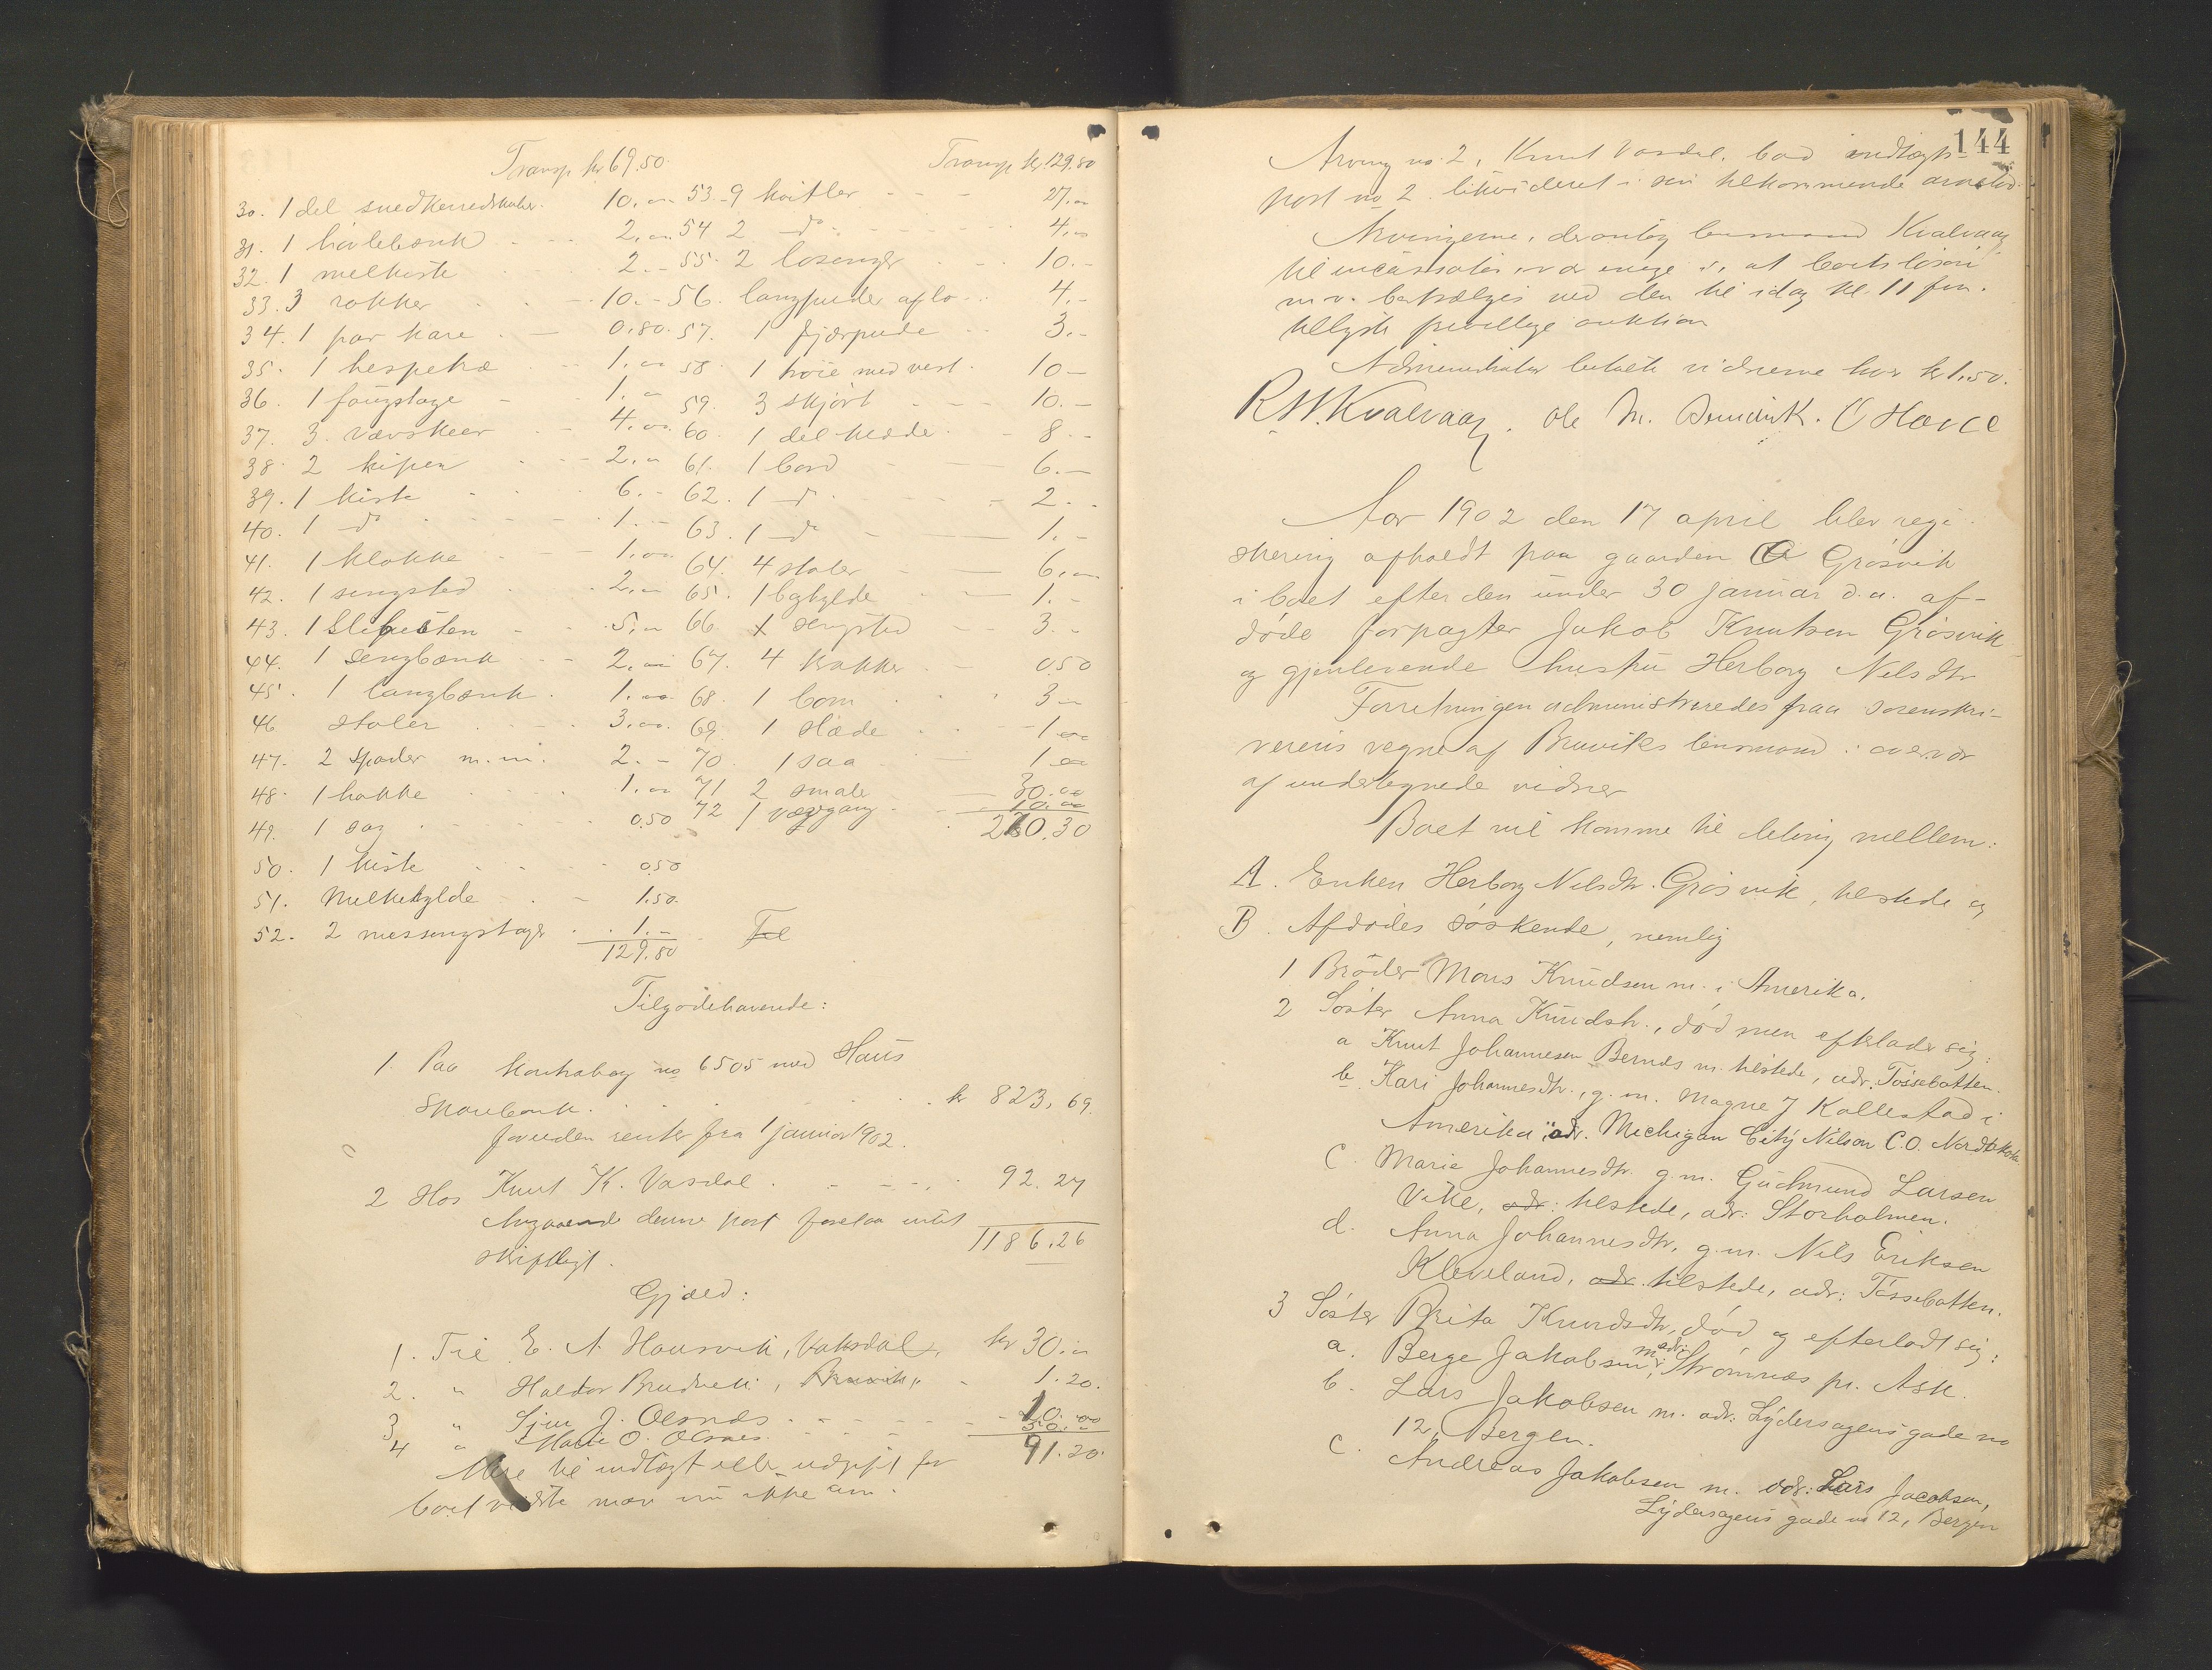 Transp kr 69.50.
30. 1 del snedkerredskaber. 10.00
31. 1 høvlebænk 2.00
32. 1 melkiste 2.-
33. 3 rokker 10.-
34. 1 par kare 0.80.
35. 1 hespetræ 1.00
36. 1 fougstage 1.-
37. 3 vævskeer 4.00.
38. 2 kiper 2.00
39. 1 kiste 6.-
40. 1 do 1.-
41. 1 klokke 1.00.
42. 1 sengsted 2.00
43. 1 Slibesten 5.00
44. 1 sengbænk 2.00
45. 1 langbænk. 1.00
46 stoler 3.00.
47. 2 spader m.m. 2.-
48. 1 hakke 1.00
49. 1 sag 0.50
50. 1 kiste 0.50
51. Melkekylde 1.50.
52. 2 messingstager 1.-
129.80
Transp kr. 129.80
53. 9 koitler 27.00
54 2 do 4.00
55. 2 losenger 10.-
56. langpuder aflo 4.-
57. 1 fjærpude 3.-
58. 1 trøie med vest. 10-
59. 3 skjørt 10.-
60. 1 del klæde 8.-
61. 1 bord 6.-
62. 1 do 2.-
63. 1 do 1.-
64. 4 stoler 6.00
65. 1 bøtylde 1.-
66 1 sengsted 3.-
67. 4 krakker 0.50
68. 1 bom 3-
69. 1 slæde 1.00
70. 1 saa 1.00
71 2 smale 30.00
72 1 vævgang 10.00
270.30
Til
Tilgodehavende:
1. Paa kontrabog no 6505 med Haus
Sparebank. kr 823,69.
foruden renter fra 1 januar 1902.
2 Hos Knut K. Vasdal 92.27
Angaaende denne post forelaa intet
skriftligt. 1186.26
Gjæld:
1. Til E. A. Hausvik, Vaksdal, kr 30.00
2. " Haldor Brudvik, Bruvik, 1.20.
3 " Sjur J. Olsnæs 10.00
4 " Marie O. Olsnes 50.00
91.20.
Mere til indtægt eller udgift for
boet vidste man nu ikke om.
144
Arving no 2, Knut Vasdal, bad indtægts-
post no 2 likvideret i sin tilkommende arvelod.
Arvingerne, deriblandt lensmand Kvalvaag
til incassator, var enige i, at boets løsøre
m.v. bortsælges ved den til idag kl. 11 fm.
tillyste frivillige auktion
Administrator betalte vidnerne hver kr 1.50.
R. N. Kvalvaag. Ole M. Brudvik. O Havre
Aar 1902 den 17 april blev regi-
strering afholdt paa gaarden Grøsvik
i boet efter den under 30 januar d.a. af-
døde forpagter Jakob Knutsen Grøsvik
og gjenlevende hustru Herborg Nelsdtr
Forretningen administreredes paa sorenskri-
verens vegne af Bruviks lensmand i overvær
af undertegnede vidner
Boet vil komme til deling mellem:
A. Enken Herborg Nelsdtr. Grøsvik, tilstede og
B. Afdødes søskende, nemlig
1 Broder Mons Knudsen m. i Amerika.
2 Søster Anna Knudsdtr., død men efterlader sig:
a Knut Johannesen Bernes m. tilstede, adr. Tossebotten.
b. Kari Johannesdtr., g. m. Magne J Kallestad i
Amerika, adr. Michigan City Nilson C.O. Nord Dakota
c. Marie Johannesdtr. g.m. Gudmund Larsen
Vike, adr: tilstede, adr: Storholmen.
d. Anna Johannesdtr, g.m. Nils Eriksen
Kleveland, adr. tilstede, adr: Tossebotten.
3 Søster Brita Knudsdtr, død og efterladt sig:
a. Berge Jakobsen m. adr: Strømnes pr. Ask.
b. Lars Jakobsen m. adr: Lydersagens gade no
12, Bergen.
c. Andreas Jakobsen m. adr: Lars Jacobsen,
Lydersagens gade no 12, Bergen